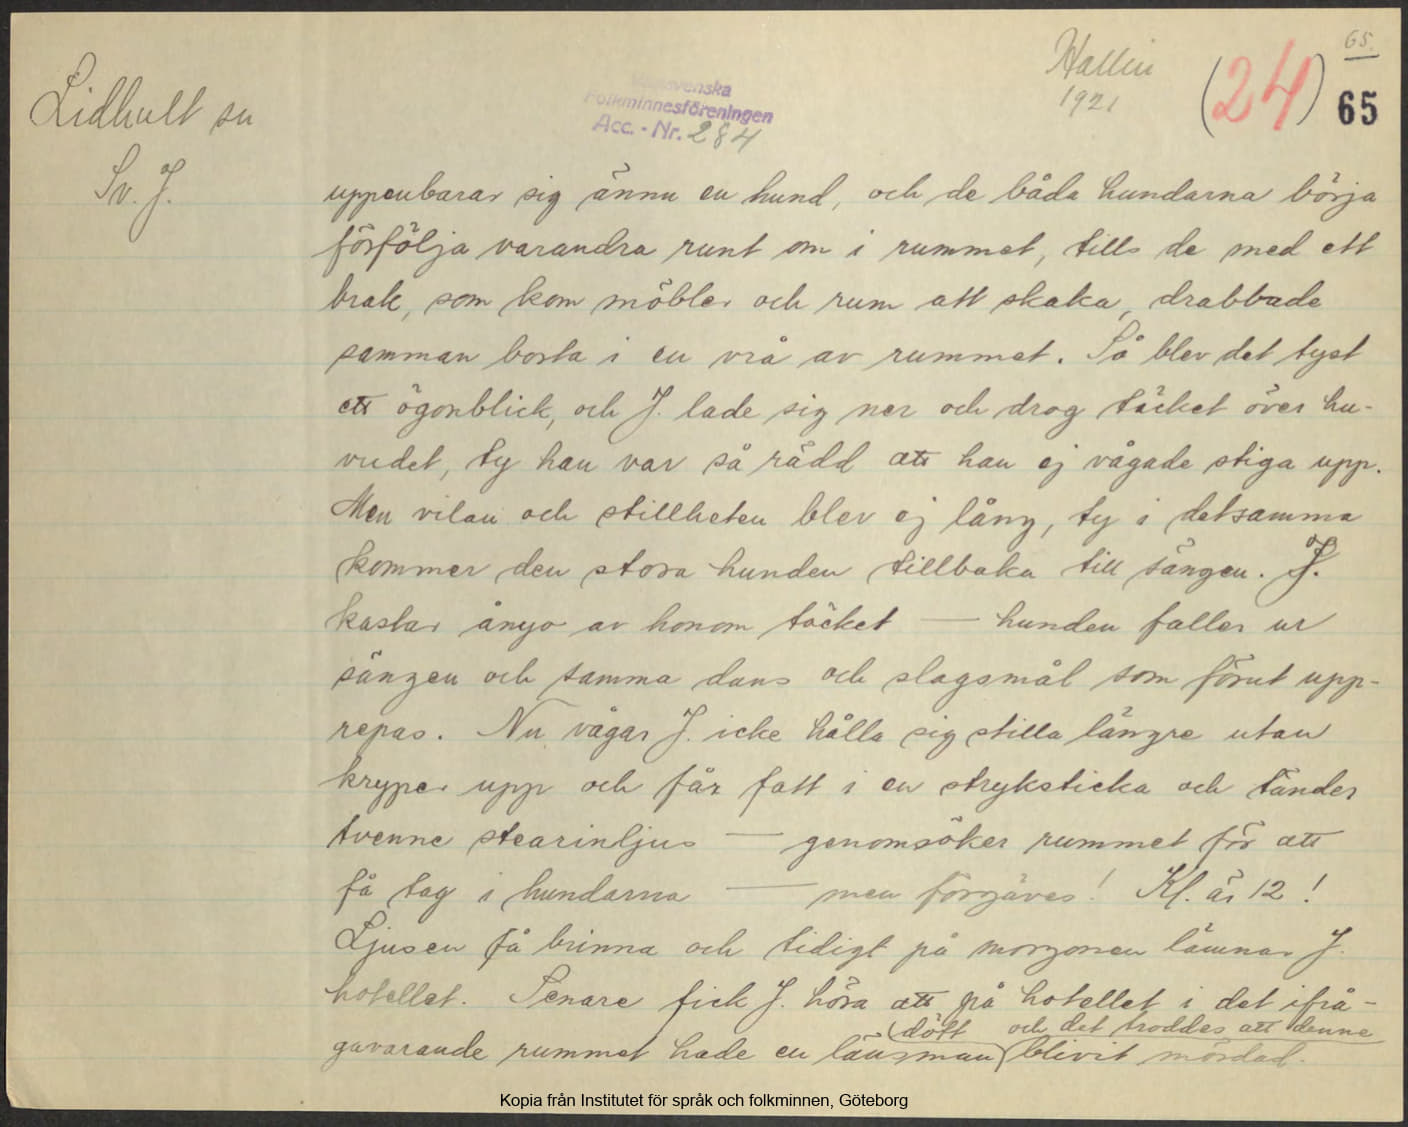 65.
Hallin
1921
(24)
65
Lidhult sn
Sv. J.
Västsvenska
Folkminnesföreningen
Acc. - Nr. 284
uppenbarar sig ännu en hund, och de båda hundarna börja
förfölja varandra runt om i rummet, tills de med ett
brak, som kom möbler och rum att skaka, drabbade
samman borta i en vrå av rummet. Så blev det tyst
ett ögonblick, och J. lade sig ner och drog täcket över hu-
vudet, ty han var så rädd att han ej vågade stiga upp.
Men vilan och stillheten blev ej lång, ty i detsamma
kommer den stora hunden tillbaka till sängen. J.
kastar ånyo av honom täcket — hunden faller ur
sängen och samma dans och slagsmål som förut upp-
repas. Nu vågar J. icke hålla sig stilla längre utan
kryper upp och får fatt i en stryksticka och tänder
tvenne stearinljus — genomsöker rummet för att
få tag i hundarna — men förgäves! Kl. är 12!
Ljusen få brinna och tidigt på morgonen lämnar J.
hotellet. Senare fick J. höra att på hotellet i det ifrå-
gavarande rummet hade en länsman dött och det troddes att denne
blivit mördad.
Kopia från Institutet för språk och folkminnen, Göteborg